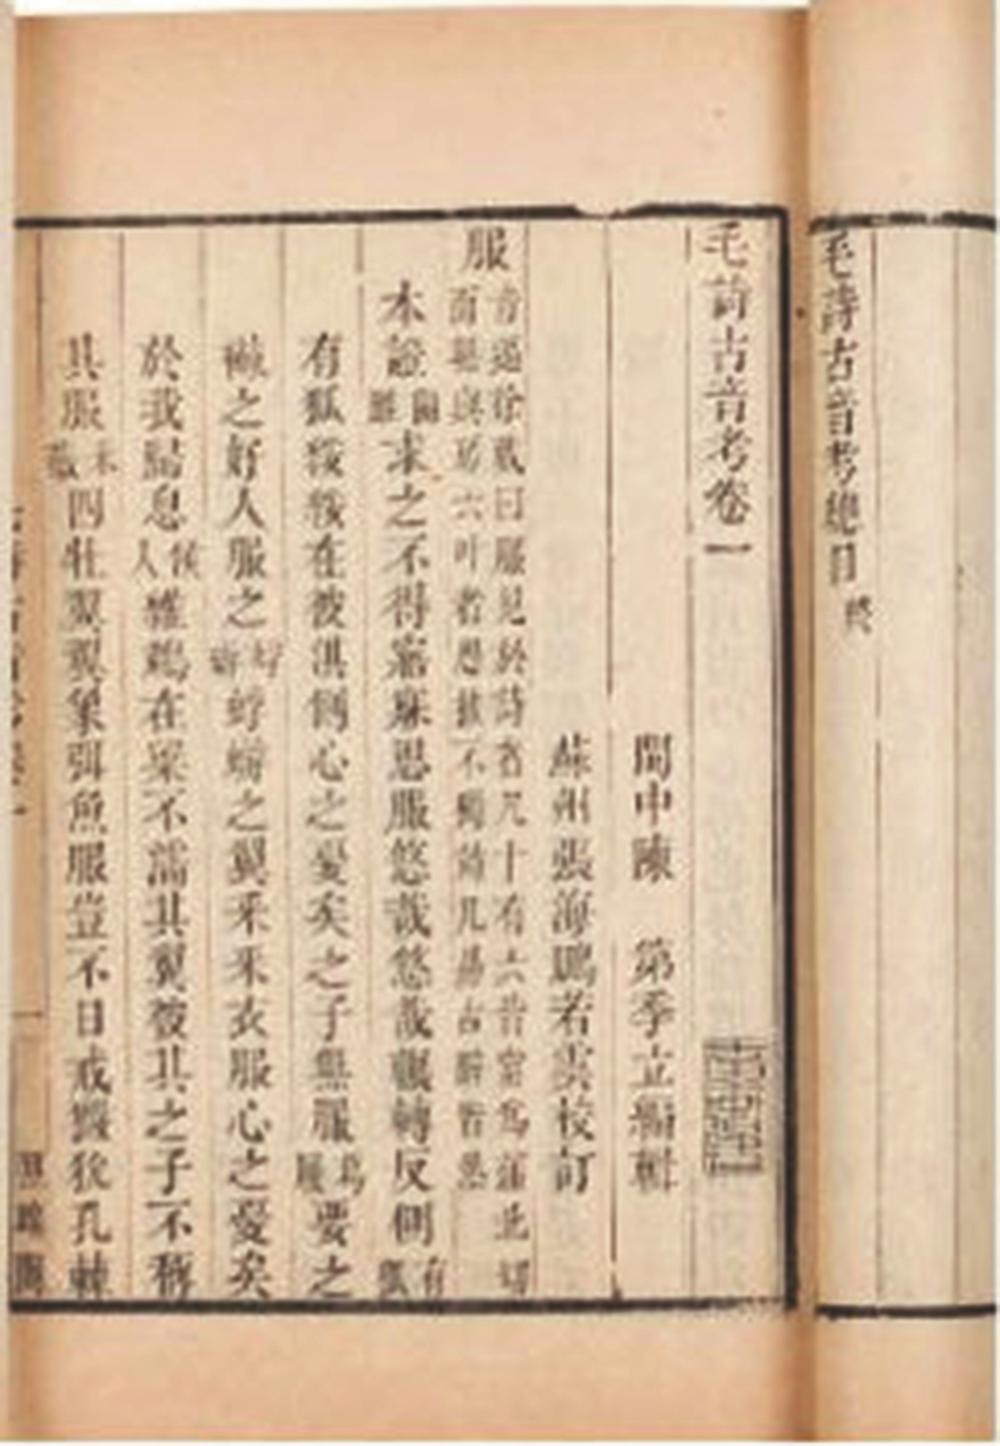 毛詩古音考總目終
毛詩古音考卷一
閩中陳 第季立編輯
蘇州張海鵬若雲校訂
服
音逼徐蕆曰服見於詩者凡十有六皆當爲蒲北切
而無與房六叶者愚按不獨詩凡易古辭皆然
本證關雎求之不得寤寐思服悠哉悠哉輾轉反側有狐
有狐綏綏在彼淇側心之憂矣之子無服葛屨要之
襋之好人服之蜉蝣蜉蝣之翼采采衣服心之憂矣
於我歸息候人維鵜在梁不濡其翼彼其之子不稱
其服采薇四牡翼翼象弭魚服豈不日戒玁狁孔棘